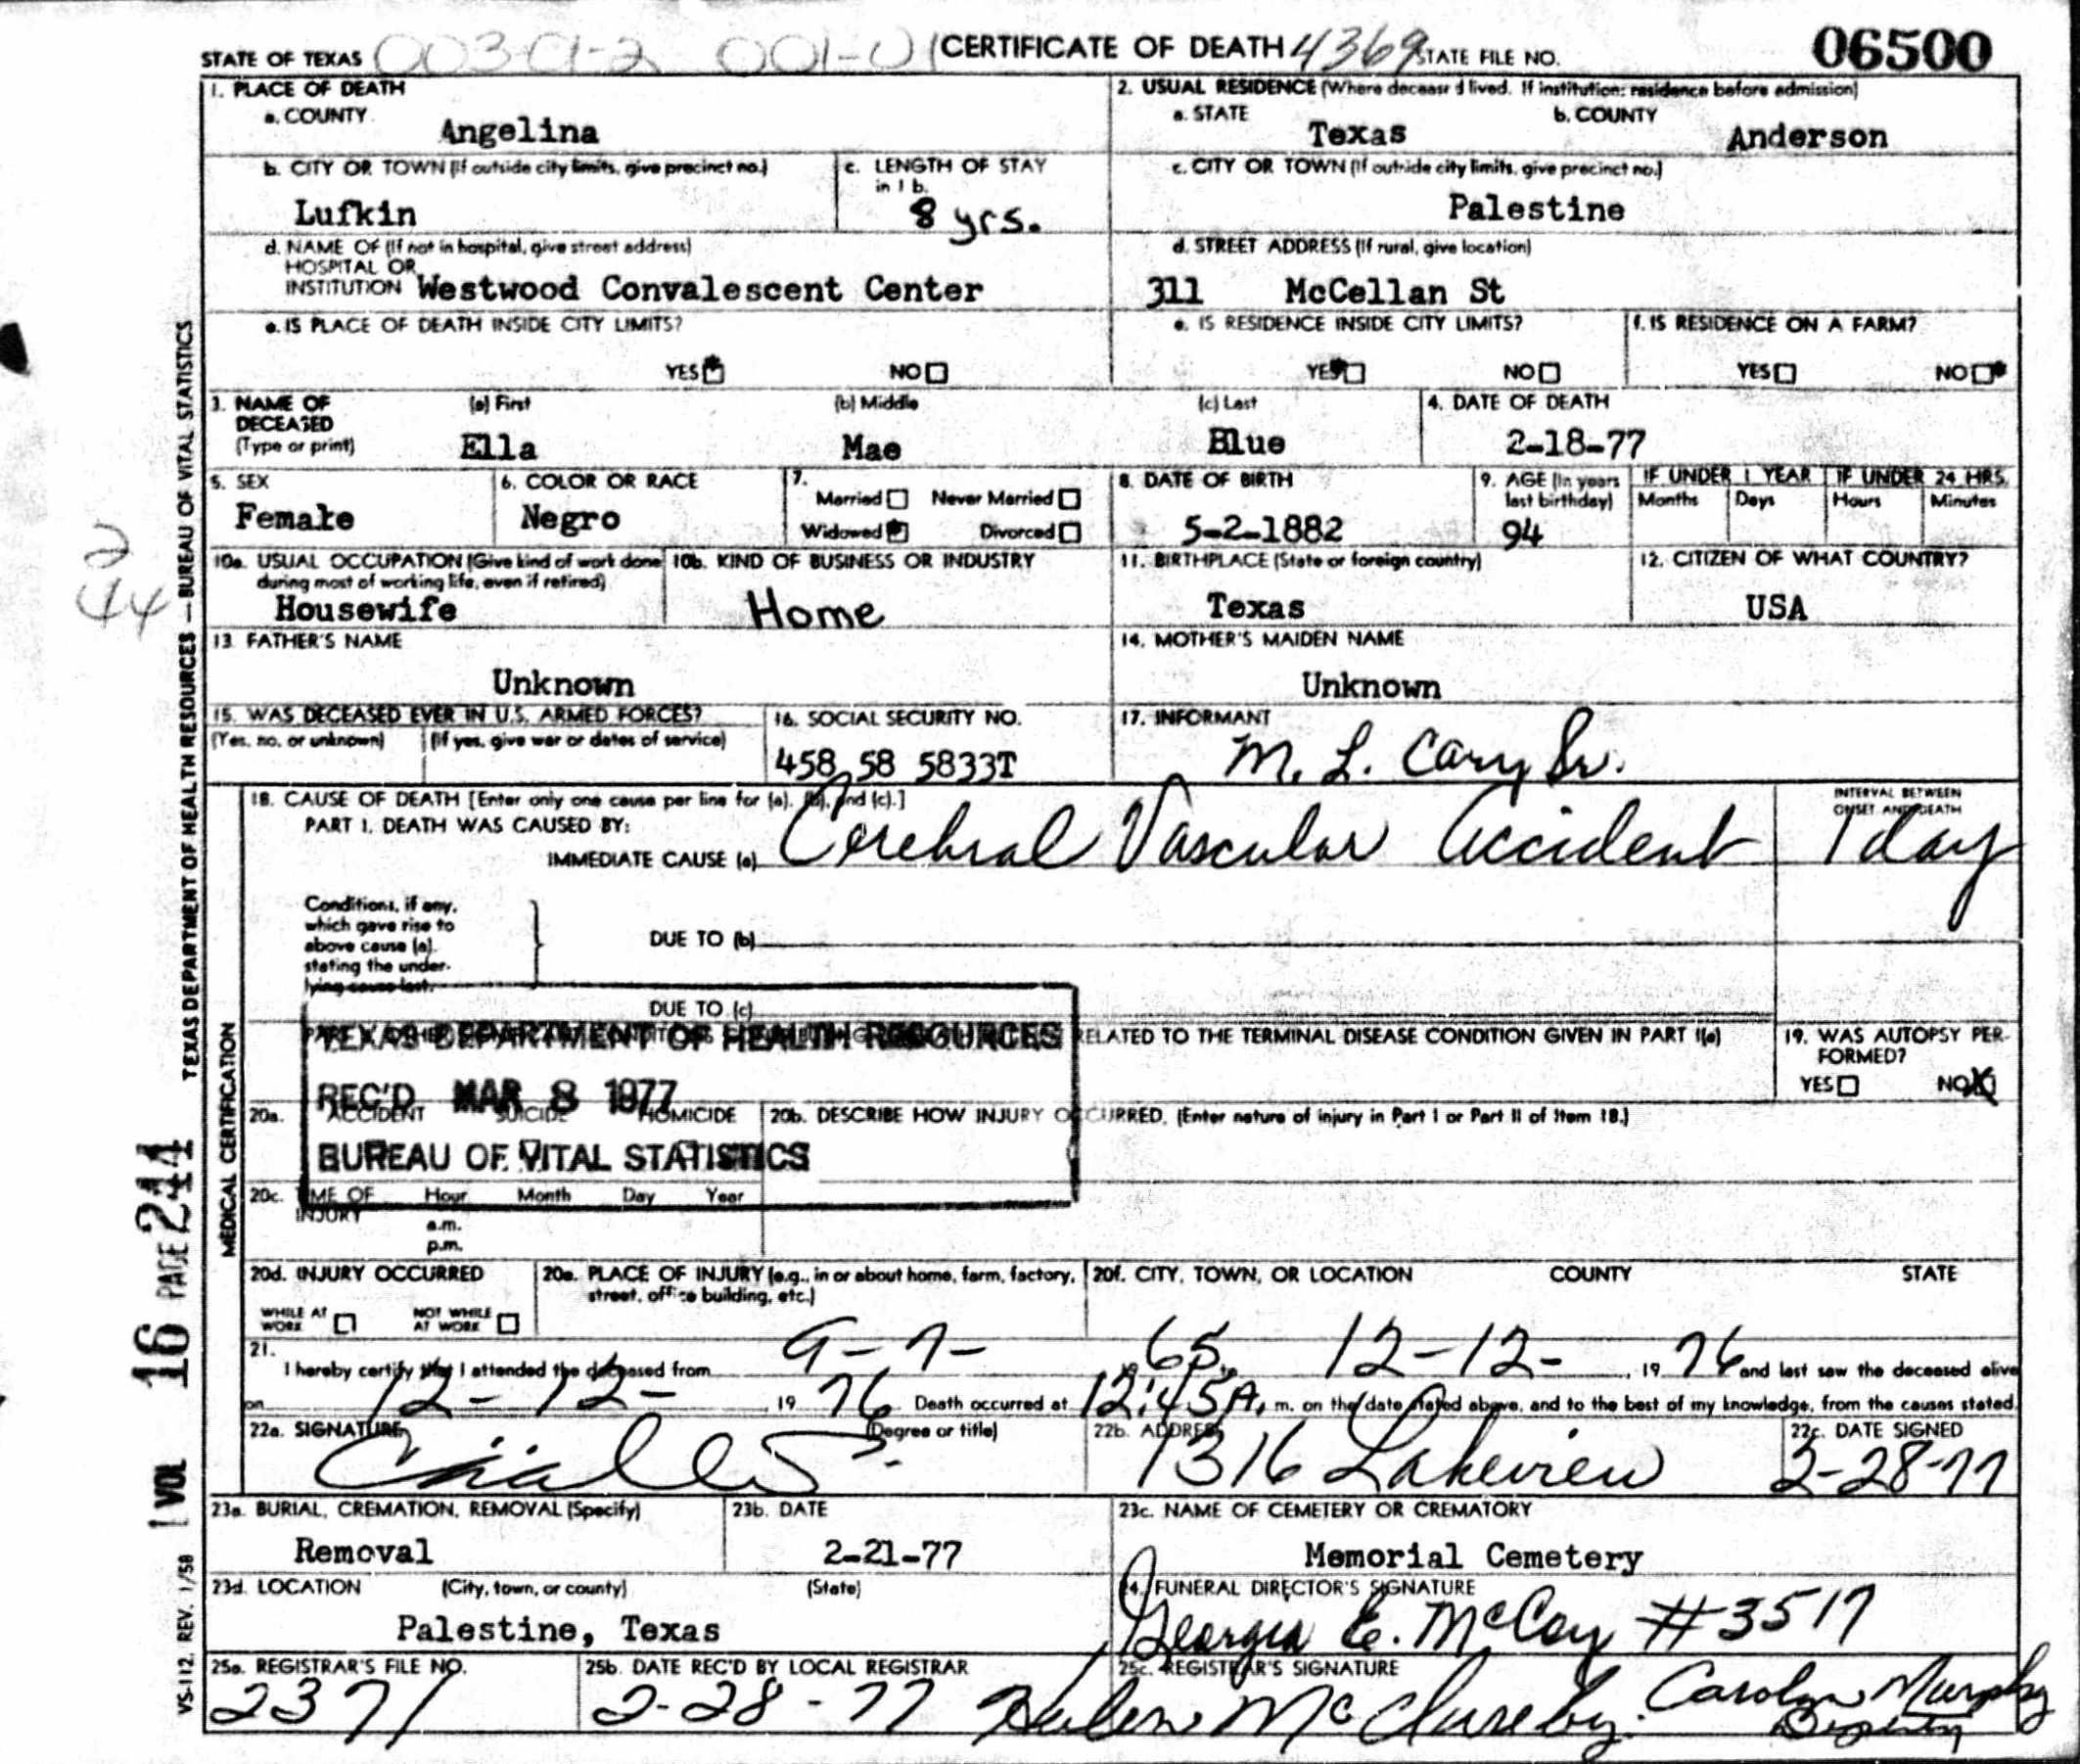 STATE OF TEXAS 003-01-2 001-0 CERTIFICATE OF DEATH 4369 STATE FILE NO. 06500
1. PLACE OF DEATH
a. COUNTY
Angelina
2. USUAL RESIDENCE (Where deceased lived. If institution: residence before admission)
a. STATE
Texas
b. COUNTY
Anderson
b. CITY OR TOWN (If outside city limits, give precinct no.)
Lufkin
c. LENGTH OF STAY
in 1 b.
8 yrs.
c. CITY OR TOWN (If outside city limits, give precinct no.)
Palestine
d. NAME OF (If not in hospital, give street address)
HOSPITAL OR
INSTITUTION Westwood Convalescent Center
d. STREET ADDRESS (If rural, give location)
311 McCellan St
e. IS PLACE OF DEATH INSIDE CITY LIMITS?
YES NO
e. IS RESIDENCE INSIDE CITY LIMITS?
YES NO
f. IS RESIDENCE ON A FARM?
YES NO
3. NAME OF
DECEASED
(Type or print)
(a) First
Ella
(b) Middle
Mae
(c) Last
Blue
4. DATE OF DEATH
2-18-77
5. SEX
Female
6. COLOR OR RACE
Negro
7.
Married Never Married
Widowed Divorced
8. DATE OF BIRTH
5-2-1882
9. AGE (In years
last birthday)
94
IF UNDER 1 YEAR
Months Days
IF UNDER 24 HRS.
Hours Minutes
2
44
10a. USUAL OCCUPATION (Give kind of work done
during most of working life, even if retired)
Housewife
10b. KIND OF BUSINESS OR INDUSTRY
Home
11. BIRTHPLACE (State or foreign country)
Texas
12. CITIZEN OF WHAT COUNTRY?
USA
13. FATHER'S NAME
Unknown
14. MOTHER'S MAIDEN NAME
Unknown
15. WAS DECEASED EVER IN U.S. ARMED FORCES?
(Yes, no, or unknown) (If yes, give war or dates of service)
16. SOCIAL SECURITY NO.
458 58 5833T
17. INFORMANT
M. L. Cary Sr.
18. CAUSE OF DEATH [Enter only one cause per line for (a), (b), and (c).]
PART I. DEATH WAS CAUSED BY:
IMMEDIATE CAUSE (a) Cerebral Vascular Accident
INTERVAL BETWEEN
ONSET AND DEATH
1 day
Conditions, if any,
which gave rise to
above cause (a),
stating the under-
lying cause last.
DUE TO (b)
DUE TO (c)
RELATED TO THE TERMINAL DISEASE CONDITION GIVEN IN PART I(a)
TEXAS DEPARTMENT OF HEALTH RESOURCES
REC'D MAR 8 1977
BUREAU OF VITAL STATISTICS
19. WAS AUTOPSY PER-
FORMED?
YES NO
20a. ACCIDENT SUICIDE HOMICIDE
20b. DESCRIBE HOW INJURY OCCURRED. (Enter nature of injury in Part I or Part II of Item 18.)
20c. TIME OF
INJURY
Hour Month Day Year
a.m.
p.m.
20d. INJURY OCCURRED
WHILE AT
WORK
NOT WHILE
AT WORK
20e. PLACE OF INJURY (e.g., in or about home, farm, factory,
street, office building, etc.)
20f. CITY, TOWN, OR LOCATION COUNTY STATE
21.
I hereby certify that I attended the deceased from 9-7- 1965, 12-12-, 1976 and last saw the deceased alive
on 12-12-, 1976. Death occurred at 12:45 A. m. on the date stated above, and to the best of my knowledge, from the causes stated.
22a. SIGNATURE (Degree or title)
22b. ADDRESS
1316 Lakeview
22c. DATE SIGNED
2-28-77
23a. BURIAL, CREMATION, REMOVAL (Specify)
Removal
23b. DATE
2-21-77
23c. NAME OF CEMETERY OR CREMATORY
Memorial Cemetery
23d. LOCATION (City, town, or county) (State)
Palestine, Texas
24. FUNERAL DIRECTOR'S SIGNATURE
Georgia E. McCoy #3517
25a. REGISTRAR'S FILE NO.
2371
25b. DATE REC'D BY LOCAL REGISTRAR
2-28-77
25c. REGISTRAR'S SIGNATURE
Helen McClure by: Carolyn Murphy
Deputy
MEDICAL CERTIFICATION
TEXAS DEPARTMENT OF HEALTH RESOURCES — BUREAU OF VITAL STATISTICS
VOL 16 PAGE 244
VS-112. REV. 1/58